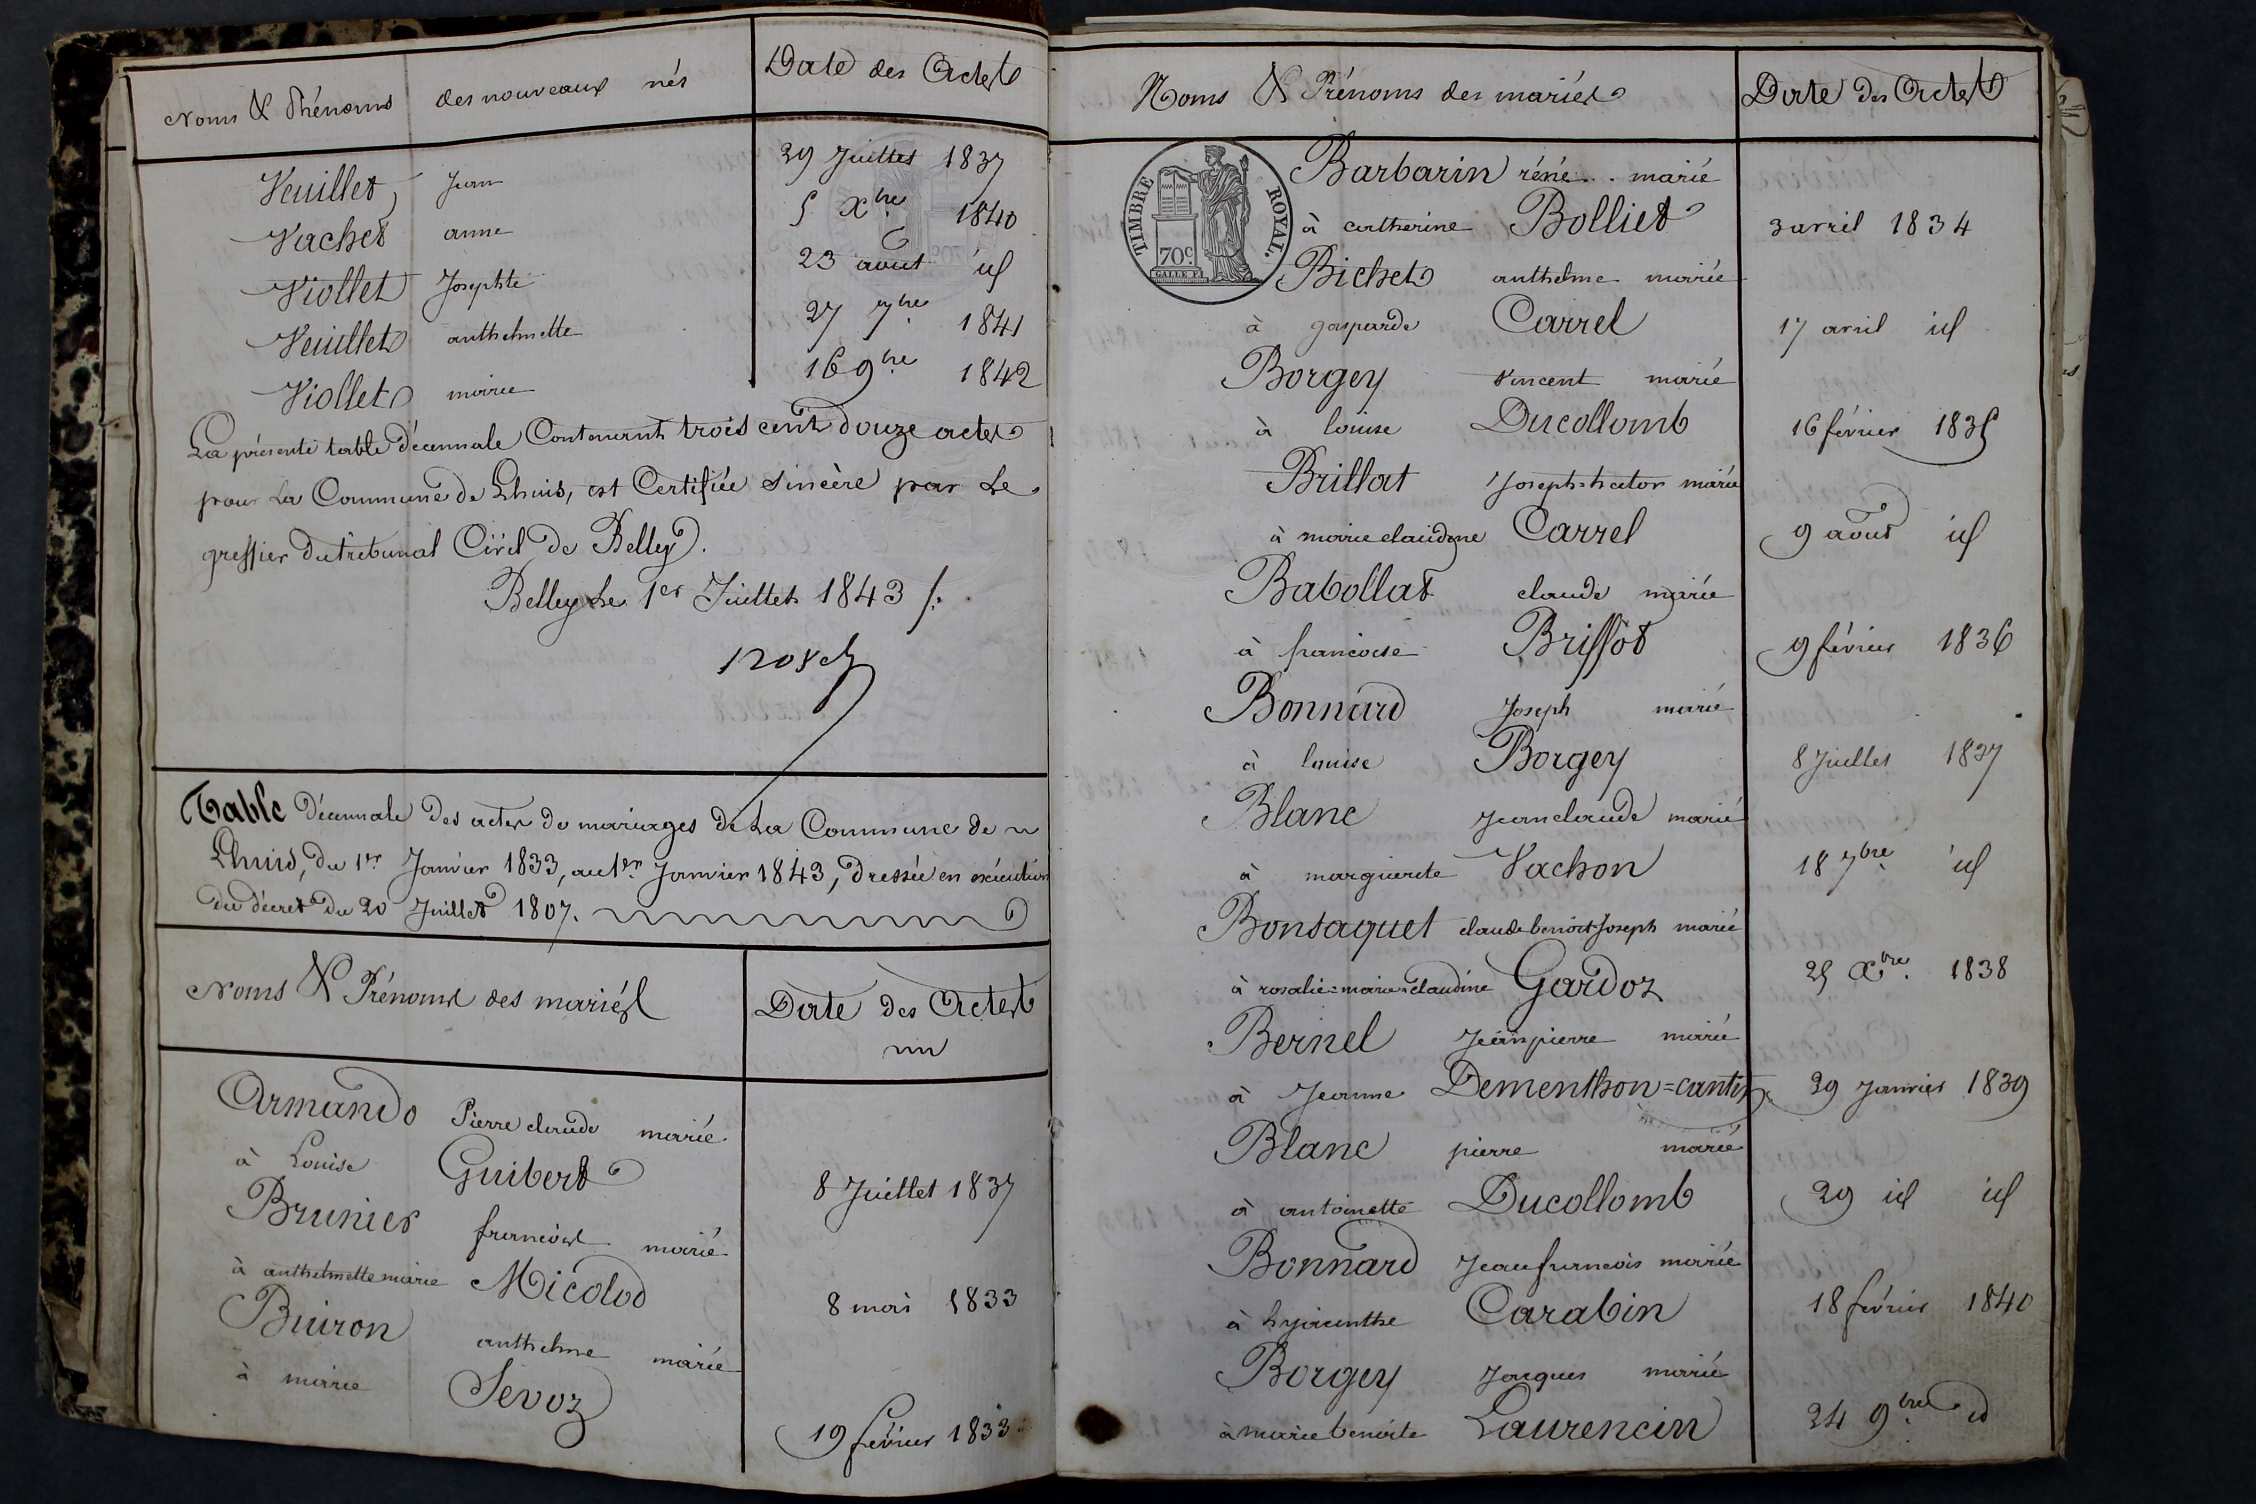 Noms & Prénoms des nouveaux nés Date des Actes
Veuillet Jean 29 Juillet 1837
Vachet anne 5 Xbre 1840
Viollet Josephte 23 aout id
Veuillet anthelmette 27 7bre 1841
Viollet marie 16 9bre 1842
La présente table décennale Contenant trois cent douze actes
pour La Commune de Lhuis, est Certifiée sincère par Le
greffier du tribunal Civil de Belley.
Belley Le 1er Juillet 1843 /.
Table décennale des actes de mariages de La Commune de
Lhuis, du 1er Janvier 1833, au 1er Janvier 1843, dressée en exécution
du décret du 20 Juillet 1807.
Noms & Prénoms des mariés Date des Actes
Armand Pierre claude marié
à Louise Guibert 8 Juillet 1837
Brunier francois marié
à anthelmette marie Micolod 8 mai 1833
Buiron anthelme marié
à marie Sevoz 19 février 1833
Noms & Prénoms des mariés Date des Actes
TIMBRE ROYAL.
70c.
Barbarin réné . . marié
à catherine Bolliet 3 avril 1834
Bichet anthelme marié
à gasparde Carrel 17 avril id
Borgey Vincent marié
à louise Ducollomb 16 février 1835
Brillat Joseph=hector marié
à marie claudine Carrel 9 août id
Babollat claude marié
à francoise Briffot 9 février 1836
Bonnard Joseph marié
à louise Borgey 8 Juillet 1837
Blanc Jean claude marié
à marguerite Vachon 18 7bre id
Bonsaquet claude benoit Joseph marié
à rosalie=marie=claudine Gardoz 25 Xbre. 1838
Bernel Jean pierre marié
à Jeanne Dementhon=cantoz 29 Janvier 1839
Blanc pierre marié
à antoinette Ducollomb 29 id id
Bonnard Jean francois marié
à hyacinthe Carabin 18 février 1840
Borgey Jacques marié
à marie benoite Laurencin 24 9bre id